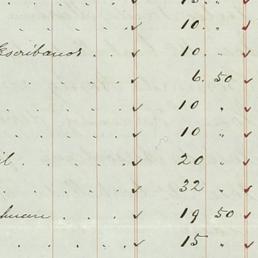 . . . . ✓ 15. " ✓
. . . . ✓ 10. " ✓
Escribanos . ✓ 10. " ✓
. . . . ✓ 6. 50 ✓
. . . . ✓ 10 " ✓
. . . . ✓ 10 " ✓
il . . . ✓ 20 " ✓
. . . . ✓ 32 " ✓
. . ✓ 19 50 ✓
. . . . ✓ 15 " ✓